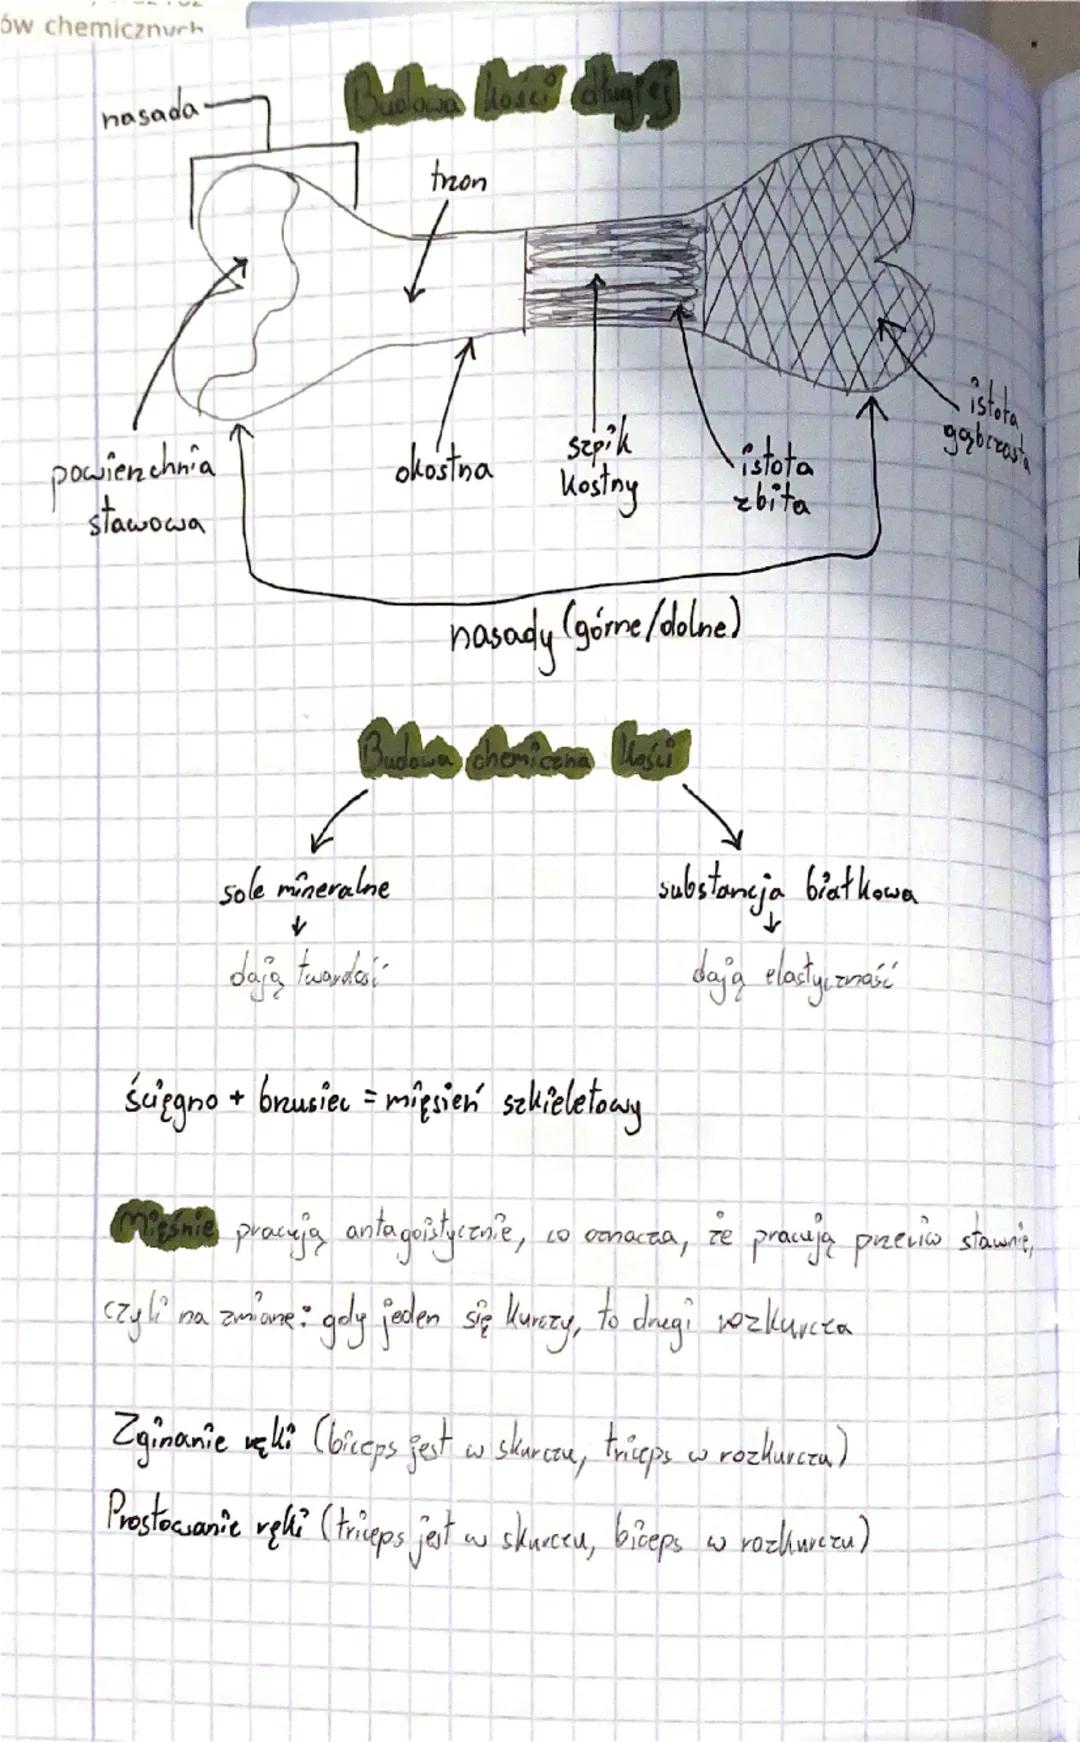 ów chemicznych
Budowa kości długiej
nasada
trzon
powierzchnia
stawowa
okostna
szpik
kostny
istota
zbita
istota
gąbczasta
nasady (górne/dolne)
Budowa chemiczna kości
sole mineralne
substancja białkowa
dają twardość
dają elastyczność
ścięgno + brzusiec = mięsień szkieletowy
Mięśnie pracują antagoistycznie, co oznacza, że pracują przeciw stawnie,
czyli na zmianę: gdy jeden się kurczy, to drugi rozkurcza
Zginanie ręki (biceps jest w skurczu, triceps w rozkurczu)
Prostowanie ręki (triceps jest w skurczu, biceps w rozkurczu)